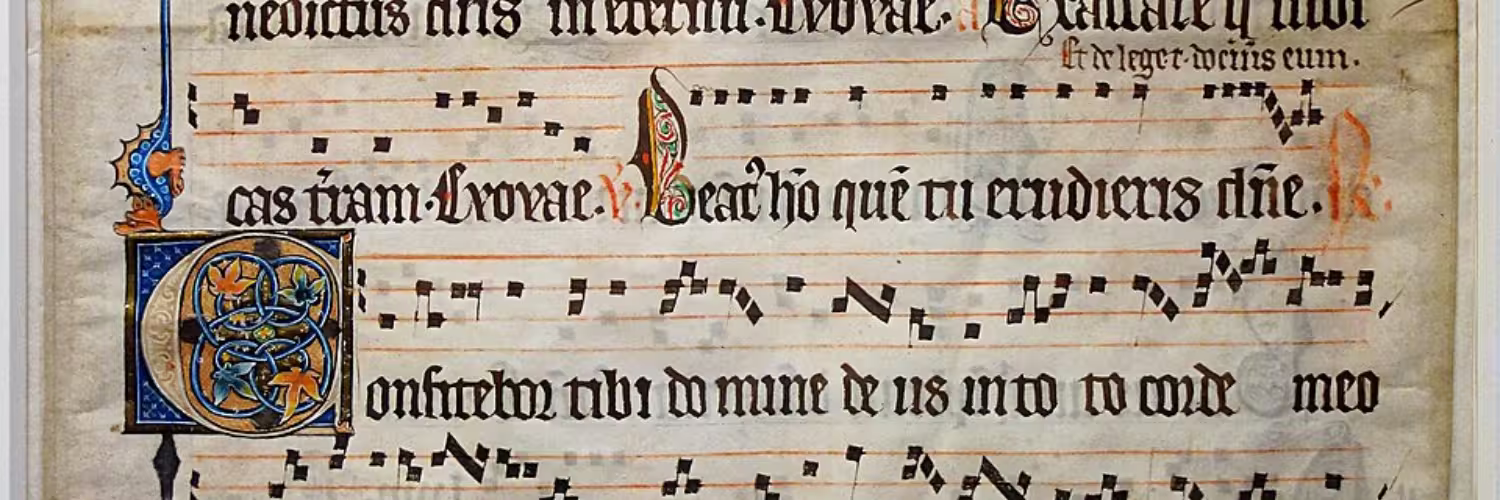 nedictus dn̄s in eternū. Evovae. a Exaltare q̄ iudi
Et de lege t. docūis eum.
cas t̄ram. Evovae. V. Beat᷒ hō quē tu erudieris dn̄e. R.
Confitebor tibi do mine de us in to to corde meo